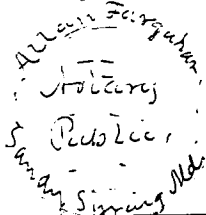 Allan Farquhar
Notary
Public,
Sandy Spring Md.